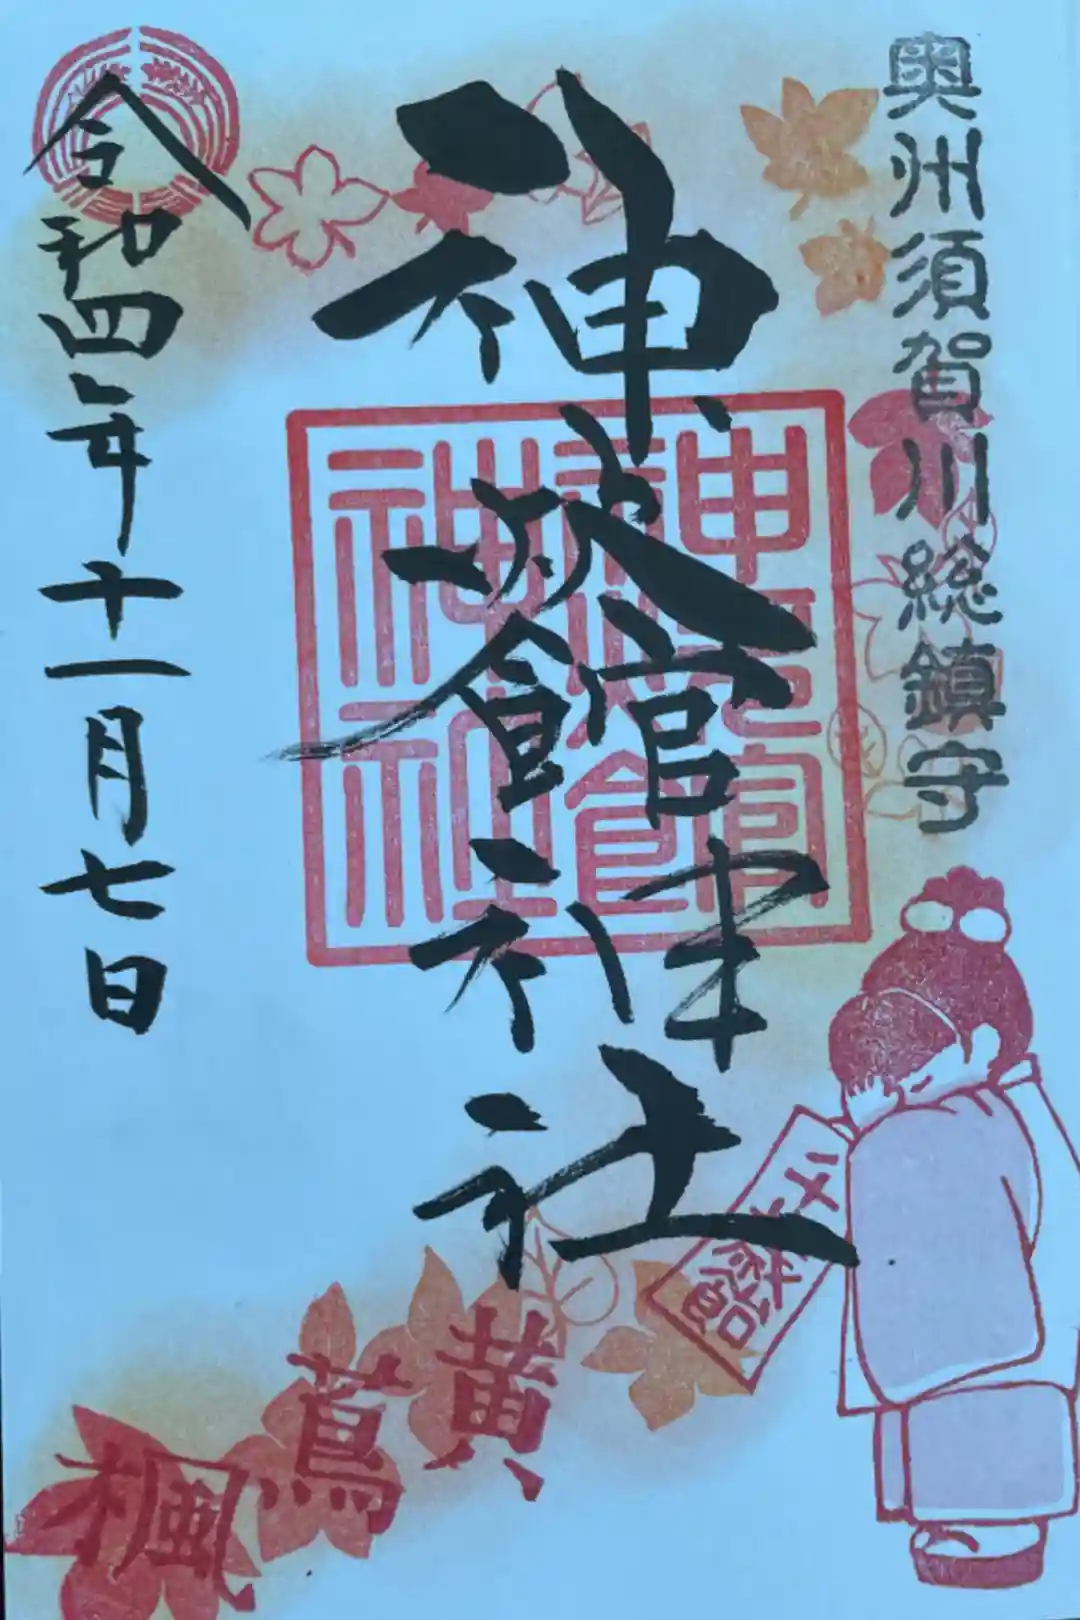 奥州須賀川総鎮守
神炊館神社
神炊館
神社
令和四年十一月七日
千歳飴
楓蔦黄